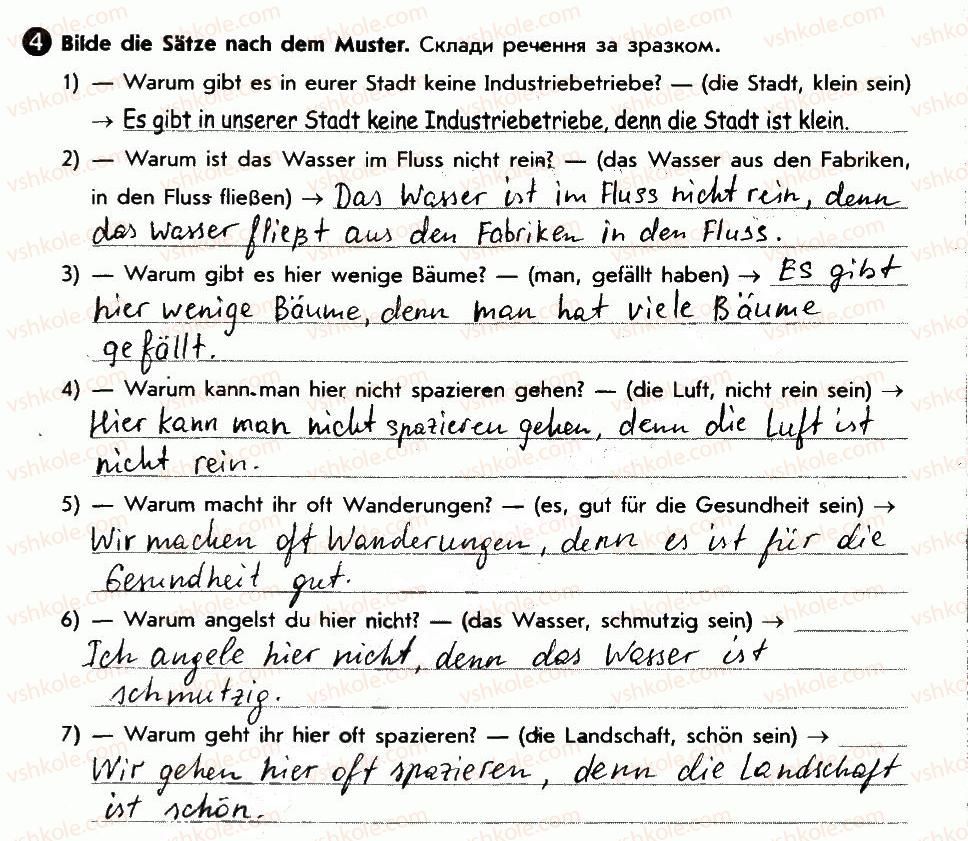 4 Bilde die Sätze nach dem Muster. Склади речення за зразком.
1) — Warum gibt es in eurer Stadt keine Industriebetriebe? — (die Stadt, klein sein)
→ Es gibt in unserer Stadt keine Industriebetriebe, denn die Stadt ist klein.
2) — Warum ist das Wasser im Fluss nicht rein? — (das Wasser aus den Fabriken,
in den Fluss fließen) → Das Wasser ist im Fluss nicht rein, denn
das Wasser fließt aus den Fabriken in den Fluss.
3) — Warum gibt es hier wenige Bäume? — (man, gefällt haben) → Es gibt
hier wenige Bäume, denn man hat viele Bäume
gefällt.
4) — Warum kann man hier nicht spazieren gehen? — (die Luft, nicht rein sein) →
Hier kann man nicht spazieren gehen, denn die Luft ist
nicht rein.
5) — Warum macht ihr oft Wanderungen? — (es, gut für die Gesundheit sein) →
Wir machen oft Wanderungen, denn es ist für die
Gesundheit gut.
6) — Warum angelst du hier nicht? — (das Wasser, schmutzig sein) →
Ich angele hier nicht, denn das Wasser ist
schmutzig.
7) — Warum geht ihr hier oft spazieren? — (die Landschaft, schön sein) →
Wir gehen hier oft spazieren, denn die Landschaft
ist schön.
vshkole.com